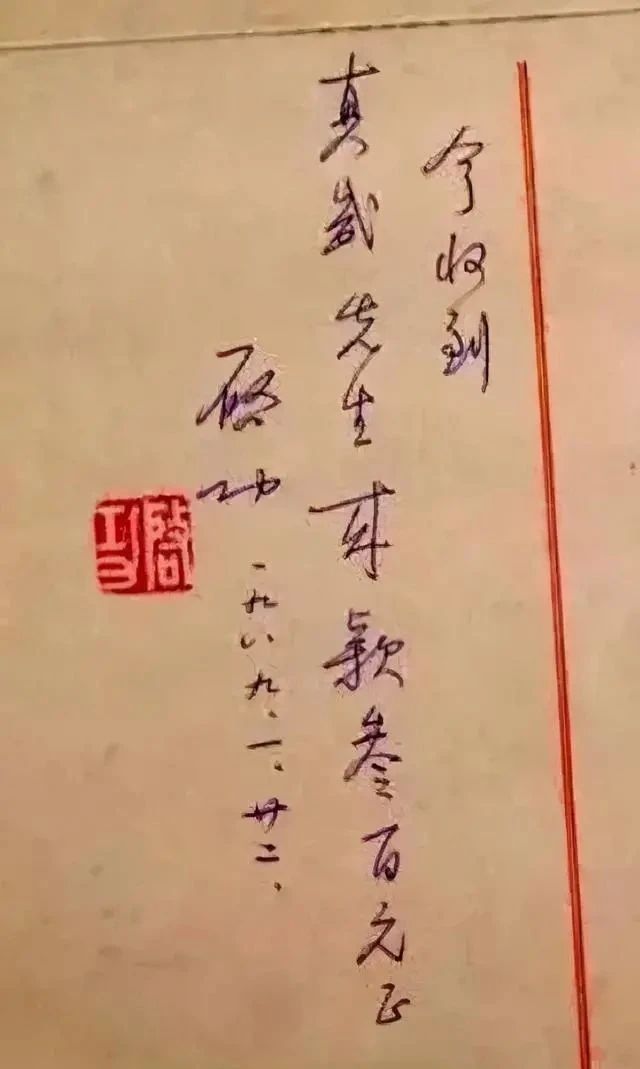 今收到
真先生款叁百元正
启功 一九八九、一、廿二、
啓功